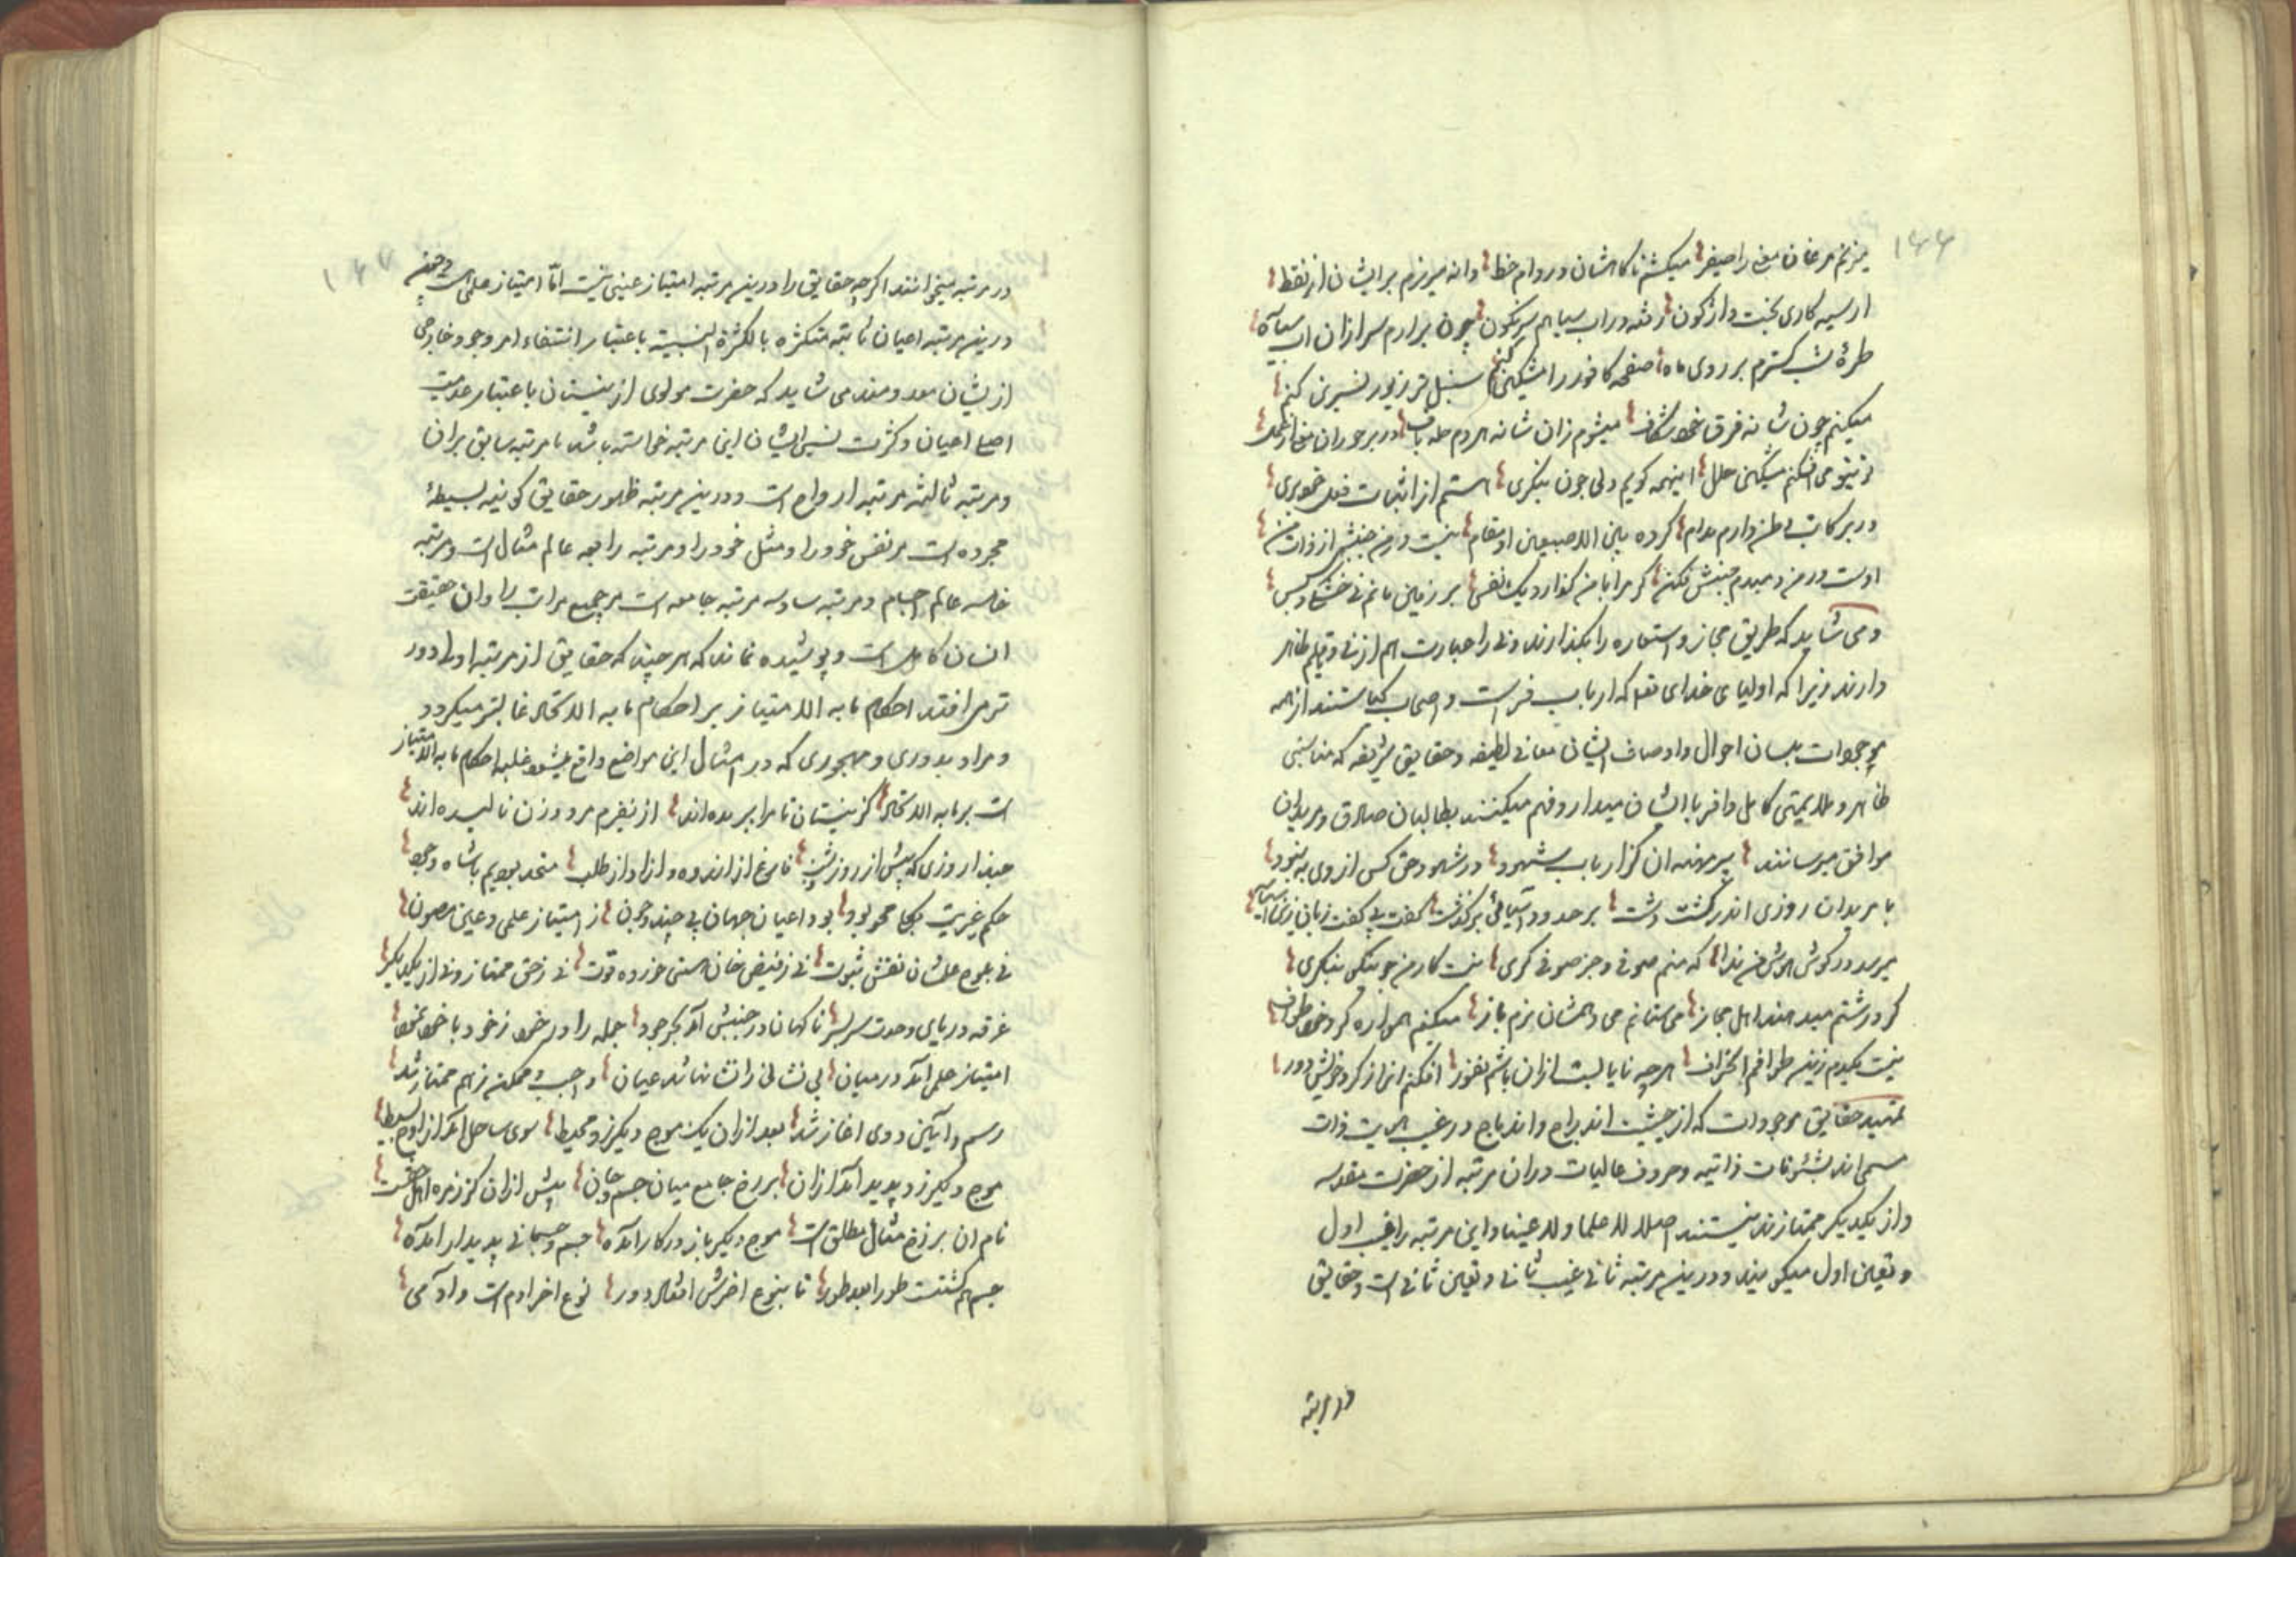 ۱۶۶
میزنم مرغان معنی را صفیر میکشم ناگاهشان در دام خط دانه میریزم برایشان از نقط
از سیه کاری بخت واژگون رفته در آب سیاهم سرنگون چون برآرم سر ازان آب سیاه
طرهٔ شب گسترم بر روی ماه صفحه کافور را مشکین کنم سنبل تر زیور نسرین کنم
میکنم چون شانه فرق خود شکاف میشوم زان شانه هر دم حله باف در بر حوران معنی از
می افکنم مشکین حلل اینهمه گویم ولی چون بنگری هستم از اثبات فعل خود بری
در بر کاتب وطن دارم مدام کرده بین الاصبعین او مقام نیست در من جنبش از ذات من
اوست در من دمبدم جنبش فکن گر مرا با من گذارد یک نفس بر زمین مانم نی خشک و بس
و می شاید که طریق مجاز و استعاره را بگذارند و نی را عبارت هم از نی و قلم ظاهر
دارند زیرا که اولیای خدای تعالی که ارباب فراست و اصحاب کیاستند از همه
موجودات بلسان احوال و اوصاف ایشان معانی لطیفه و حقایق شریفه که مناسبتی
ظاهر و ملایمتی کامل وافر با ایشان میدارد فهم میکنند بطالبان صادق و مریدان
موافق میرسانند پیر مهنه آن گزار باب شهود در شهود حق کس از وی به نبود
با مریدان روزی اندر گشت دشت بر حدود آسیائی برگذشت گفت پی گفت زبان زین آسیا
میرسد در گوش هوش من ندا که منم صوفی و جز صوفی گری نیست کار من چو نیکو بنگری
گر درشتم میدهند اهل مجاز می ستانم می دهمشان نرم باز میکنم همواره گرد خود طواف
نیست یکدم زین طوافم انحراف هر چه نابایست ازان باشم نفور افکنم آنرا ز گرد خویش دور
تمهید حقایق موجودات که از حیثیت اندراج و اندماج در غیب هویت ذات
مسمی اند بشئونات ذاتیه و حروف عالیات در آن مرتبه از حضرت مقدسه
و از یکدیگر ممتاز نیستند اصلا لا علما و لا عینا و این مرتبه را غیب اول
و تعین اول میگویند و درین مرتبه ثانی غیب ثانی و تعین ثانی است و حقایق
در مرتبه
۱۶۷
در مرتبه میخوانند اگر چه حقایق را درین مرتبه امتیاز عینی نیست اما امتیاز علمی هست
درین مرتبه اعیان ثابته متکثره بالکثرة النسبیة باعتبار انتفاء امر وجود خارجی
ازیشان معدومند می شاید که حضرت مولوی از نیستان باعتبار عدمیت
اصلی اعیان و کثرت نسبی ایشان این مرتبه خواسته باشد یا مرتبه سابق بران
و مرتبه ثالثه مرتبه ارواح است و درین مرتبه ظهور حقایق کونیه بسیطهٔ
مجرده است مر نفس خود را و مثل خود را و مرتبه رابعه عالم مثال است و مرتبه
خامسه عالم اجسام و مرتبه سادسه مرتبه جامعه است مر جمیع مراتب را و آن حقیقت
انسان کامل است و پوشیده نماند که هر چند که حقایق از مرتبه اولی دور
تر می افتد احکام ما به الامتیاز بر احکام ما به الاتحاد غالبتر میگردد
و مراد بدوری و مهجوری که در امثال این مواضع واقع میشود غلبه احکام ما به الامتیاز
است بر ما به الاتحاد کز نیستان تا مرا ببریده اند از نفیرم مرد و زن نالیده اند
حبذا روزی که پیش از روز و شب فارغ از اندوه و آزاد از طلب متحد بودیم با شاه وجود
حکم غیریت بکلی محو بود بود اعیان جهان بی چند و چون ز امتیاز علمی و عینی مصون
نی بلوح علمشان نقش ثبوت نی ز فیض خوان هستی خورده قوت نی ز حق ممتاز و نی از یکدیگر
غرقه دریای وحدت سر بسر ناگهان در جنبش آمد بحر جود جمله را در خود ز خود با خود نمود
امتیاز علمی آمد در میان بی نشانی را نشانها شد عیان واجب و ممکن ز هم ممتاز شد
رسم و آیین دوی آغاز شد بعد ازان یک موج دیگر زد محیط سوی ساحل آمد ارواح بسیط
موج دیگر زد پدید آمد ازان برزخ جامع میان جسم و جان پیش ازان کز زمره اهل حقست
نام آن برزخ مثال مطلق است موج دیگر باز در کار آمده جسم و جسمانی پدیدار آمده
جسم هم گشتست طورا بعد طور تا بنوع آخرش افتاد دور نوع آخر آدم است و آدمی